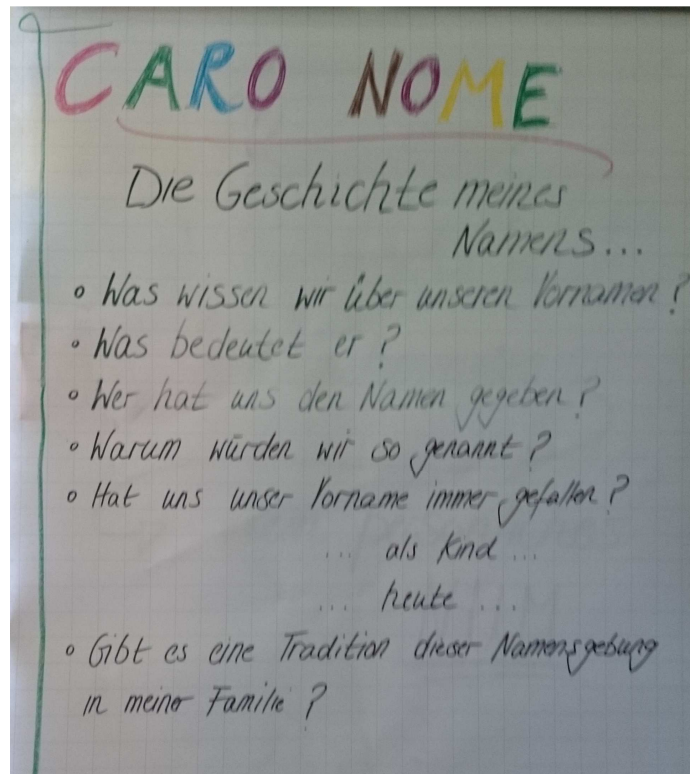 CARO NOME
Die Geschichte meines
Namens...
• Was wissen wir über unseren Vornamen?
• Was bedeutet er?
• Wer hat uns den Namen gegeben?
• Warum würden wir so genannt?
• Hat uns unser Vorname immer gefallen?
... als Kind ...
... heute ...
• Gibt es eine Tradition dieser Namensgebung
in meiner Familie?